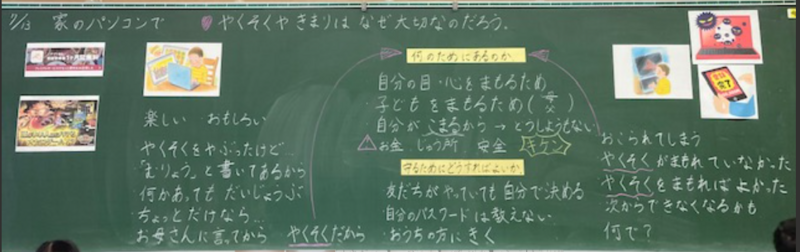 1/13 家のパソコンで やくそくや きまりは なぜ 大切なのだろう。
楽しい おもしろい
やくそくをやぶったけど
「むりょう」と書いてあるから
何かあっても だいじょうぶ
ちょっとだけなら…
お母さんに言ってから
やくそくだから
何のためにあるのか
自分の目・心をまもるため
子どもをまもるため(
自分が こまるから → どうしようもない
お金 じゅう所 安全 キケン
守るためにどうすればよいか。
友だちがやっていても 自分で決める
自分のパスワードは教えない
おうちの方にきく
登録
完了
おこられてしまう
やくそくがまもれていなかった
やくそくをまもればよかった
次からできなくなるかも
何で?